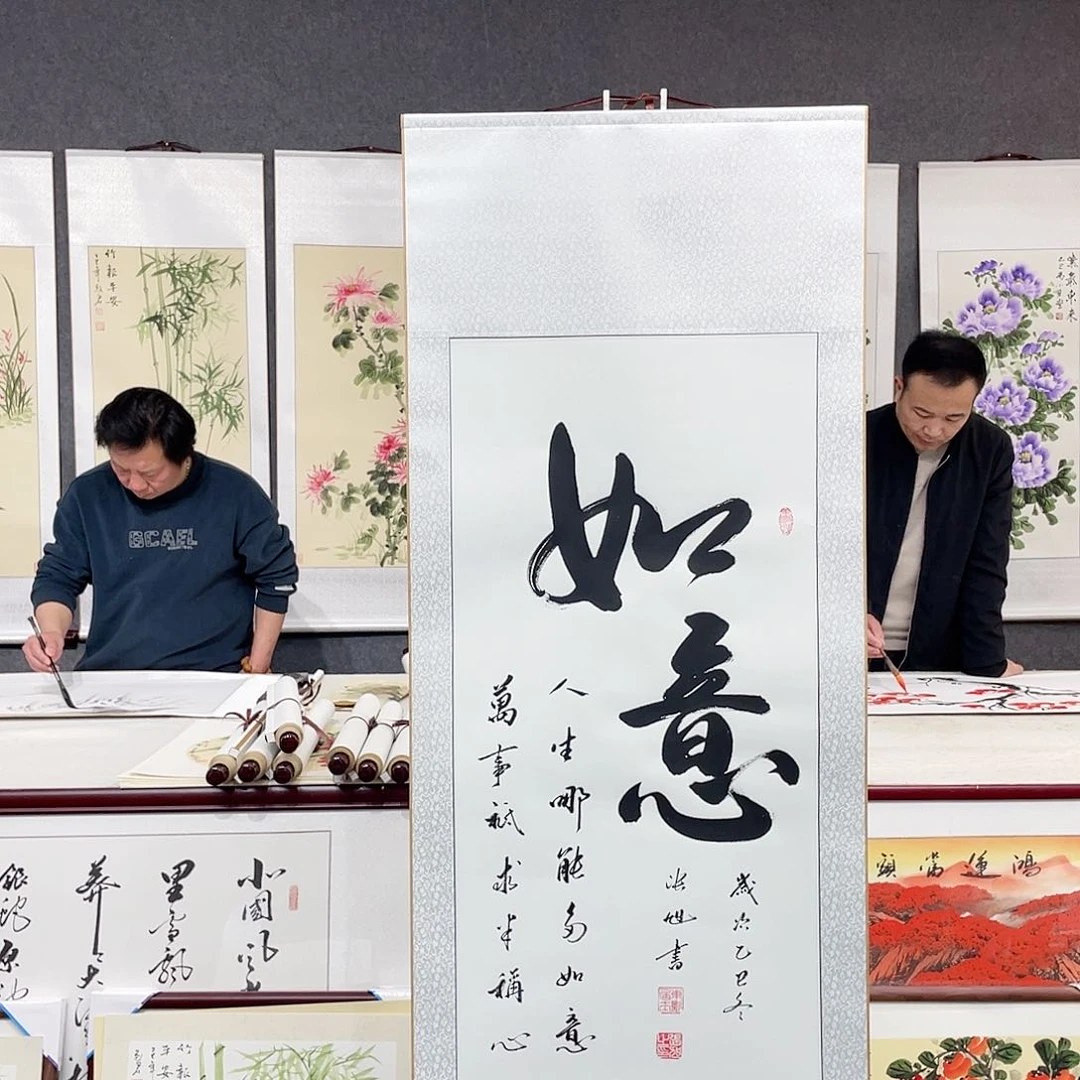 竹報平安
紫氣東來
GCAEL
如意
人生哪能多如意
萬事祇求半稱心
歲次乙巳冬
書
北國風
里雪飄
莽
銀蛇原馳
鴻運當頭
竹報
平安